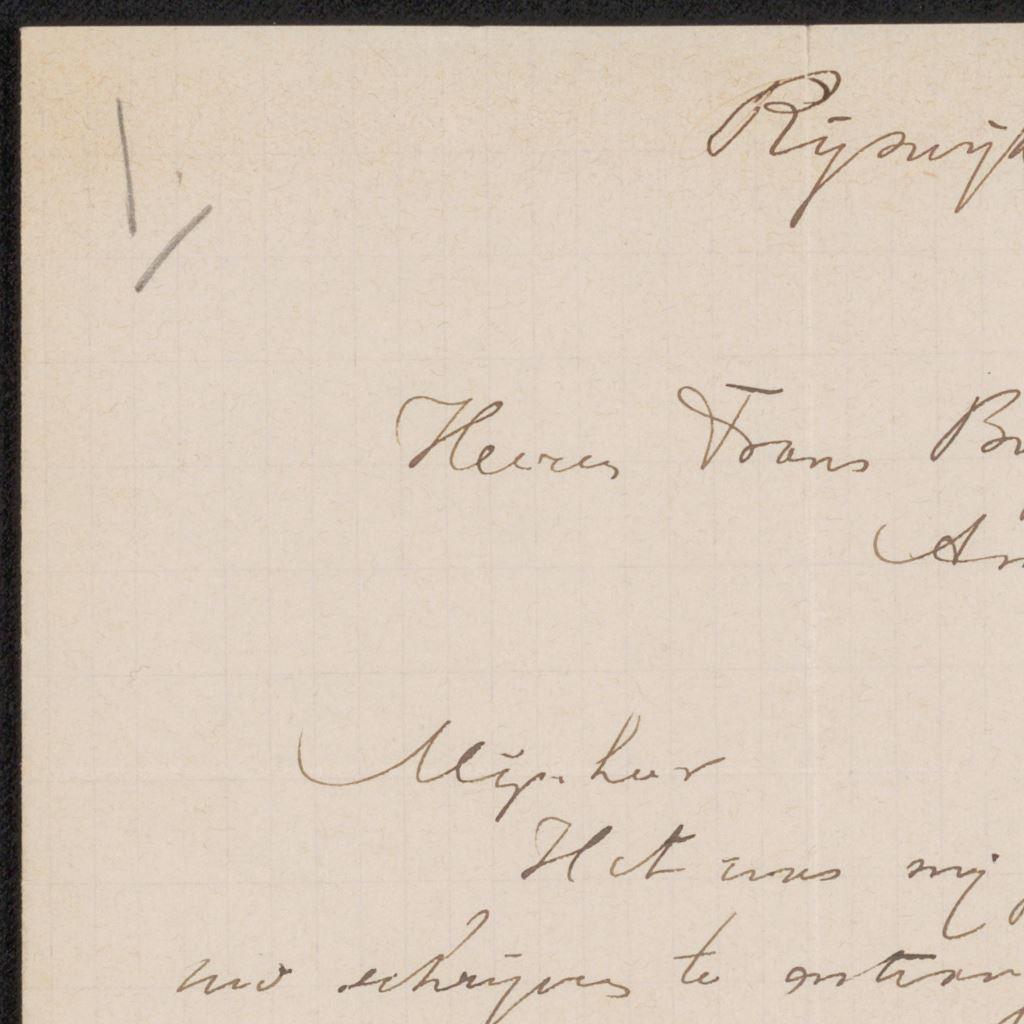 Ryswijk
Heeren Frans Bu
Am
Mijnheer
Het was mij
uw schrijven te ontvang